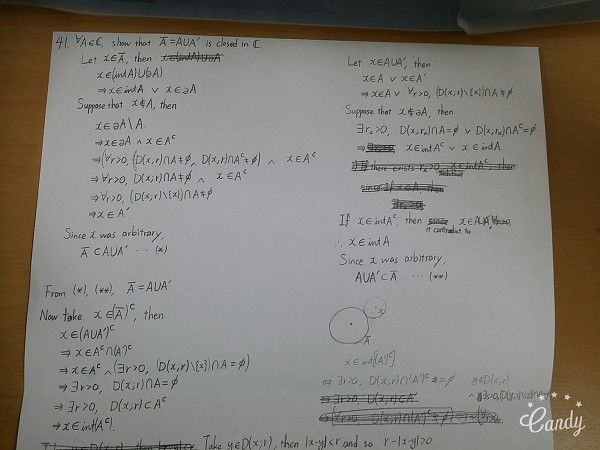 41. ∀A∈ℂ, show that Ā = A∪A′ is closed in ℂ.
Let x∈Ā, then
x∈(intA)∪∂A
⇒ x∈intA ∨ x∈∂A
Suppose that x∉A, then
x∈∂A\A.
⇒ x∈∂A ∧ x∈Aᶜ
⇒ (∀r>0, (D(x;r)∩A≠∅ ∧ D(x;r)∩Aᶜ≠∅) ∧ x∈Aᶜ
⇒ ∀r>0, D(x;r)∩A≠∅ ∧ x∈Aᶜ
⇒ ∀r>0, (D(x;r)\{x})∩A≠∅
⇒ x∈A′.
Since x was arbitrary,
Ā⊂A∪A′ ⋯ (*)
From (*), (**), Ā = A∪A′
Now take x∈(Ā)ᶜ, then
x∈(A∪A′)ᶜ
⇒ x∈Aᶜ∩(A′)ᶜ
⇒ x∈Aᶜ ∧ (∃r>0, (D(x;r)\{x})∩A=∅)
⇒ ∃r>0, D(x;r)∩A=∅
⇒ ∃r>0, D(x;r)⊂Aᶜ
⇒ x∈int(Aᶜ).
Take y∈D(x;r), then |x-y|<r and so r-|x-y|>0
Let x∈A∪A′, then
x∈A ∨ x∈A′
⇒ x∈A ∨ ∀r>0, (D(x;r)\{x})∩A≠∅
Suppose that x∉∂A, then
∃rₓ>0, D(x;rₓ)∩A=∅ ∨ D(x;rₓ)∩Aᶜ=∅
⇒ x∈intAᶜ ∨ x∈intA.
If x∈intAᶜ, then it contradict to x∈A∪A′
∴ x∈intA.
Since x was arbitrary,
A∪A′⊂Ā. ⋯ (**)
x
A
x∈int[(A′)ᶜ]
⇔ ∃r>0, D(x;r)∩(A′)ᶜ=∅
y∈D(x;r)
Candy